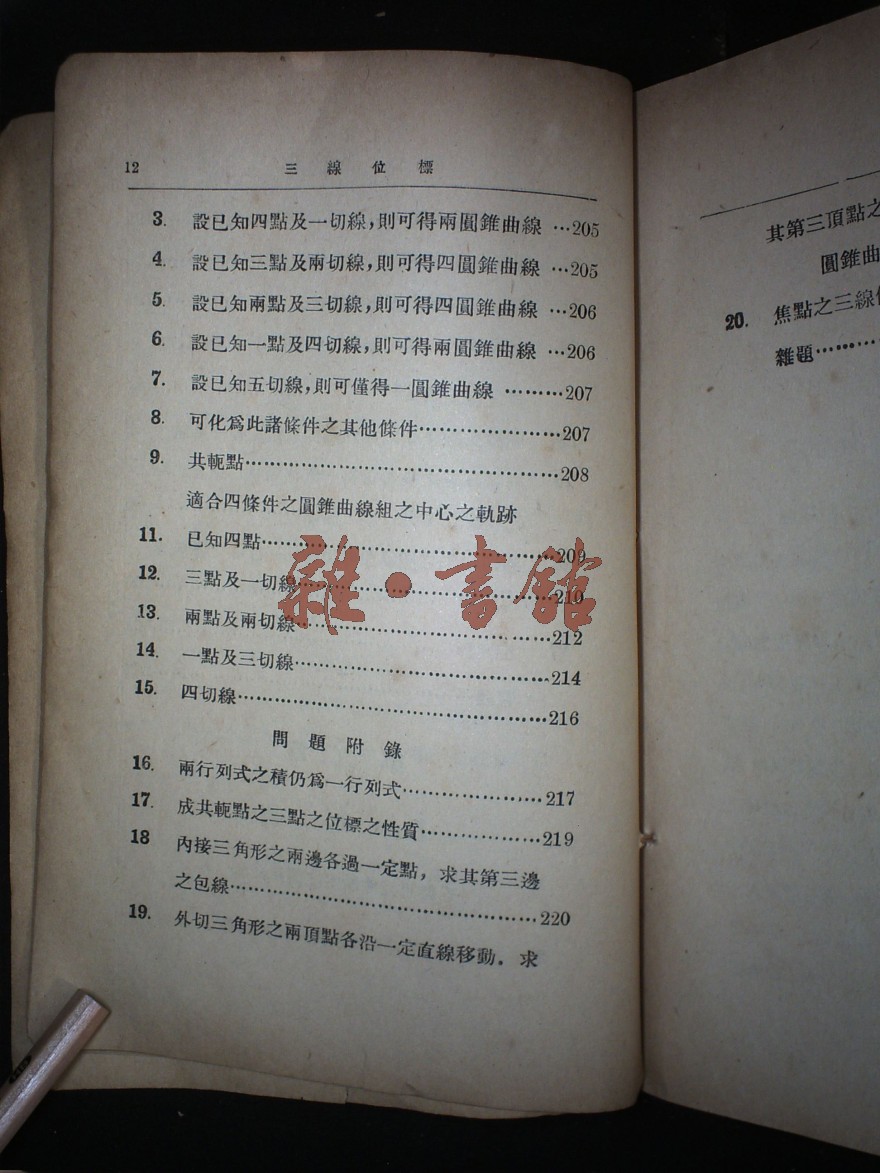 12 三線位標
3. 設已知四點及一切線,則可得兩圓錐曲線 …205
4. 設已知三點及兩切線,則可得四圓錐曲線 …205
5. 設已知兩點及三切線,則可得四圓錐曲線 …206
6. 設已知一點及四切線,則可得兩圓錐曲線 …206
7. 設已知五切線,則可僅得一圓錐曲線 ………207
8. 可化爲此諸條件之其他條件…………………207
9. 共軛點…………………………………………208
適合四條件之圓錐曲線組之中心之軌跡
11. 已知四點………………………………………209
12. 三點及一切線…………………………………210
13. 兩點及兩切線…………………………………212
14. 一點及三切線…………………………………214
15. 四切線…………………………………………216
問題附錄
16. 兩行列式之積仍爲一行列式…………………217
17. 成共軛點之三點之位標之性質………………219
18 內接三角形之兩邊各過一定點, 求其第三邊
之包線…………………………………………220
19. 外切三角形之兩頂點各沿一定直線移動. 求
雜·書館
其第三頂點之
圓錐曲
20. 焦點之三線
雜題…………